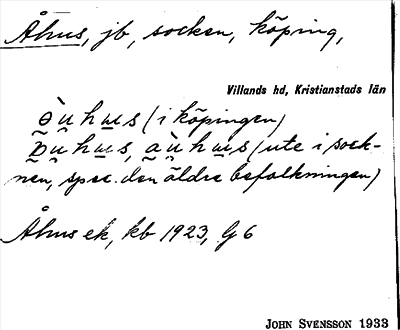 Åhus, jb, socken, köping,
Villands hd, Kristianstads län
(i köpingen)
(ute i sock-
nen, spec. den äldre befolkningen)
Åhus ek, kb 1923, G 6
JOHN SVENSSON 1933